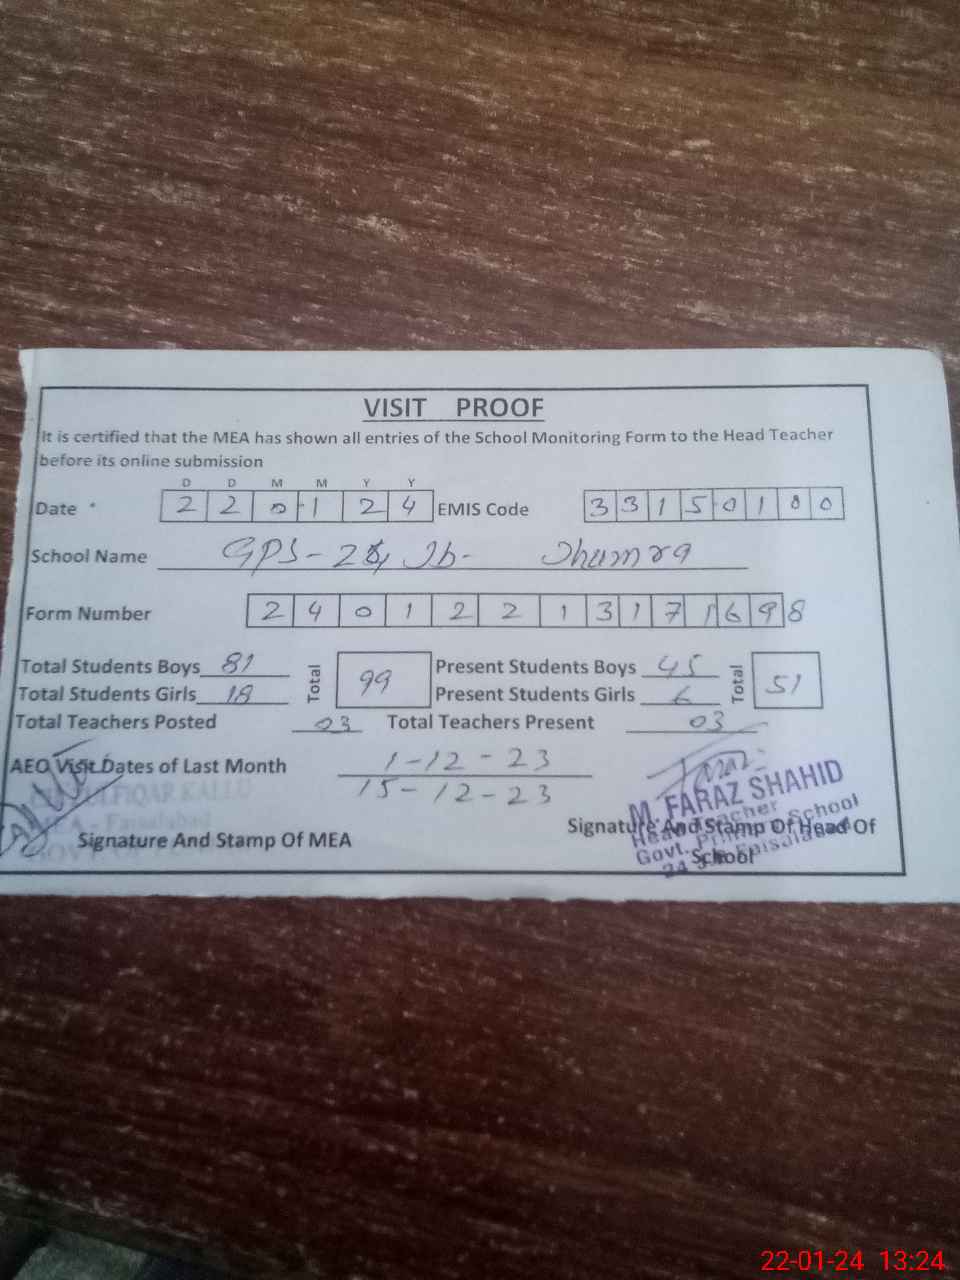 VISIT PROOF
It is certified that the MEA has shown all entries of the School Monitoring Form to the Head Teacher
before its online submission
D D M M Y Y
Date 2 2 0 1 2 4 EMIS Code 3 3 1 5 0 1 0 0
School Name GPS - 24 Jb - Jhumra
Form Number 2 4 0 1 2 2 1 3 1 7 1 6 9 8
Total Students Boys 81 Total 99 Present Students Boys 45 Total 51
Total Students Girls 18 Present Students Girls 6
Total Teachers Posted 03 Total Teachers Present 03
AEO Visit Dates of Last Month 1-12-23
15-12-23
M. FARAZ SHAHID
Head Teacher
Govt. Primary School
24
Signature And Stamp Of MEA
Signature And Stamp Of Head Of
School
22-01-24 13:24